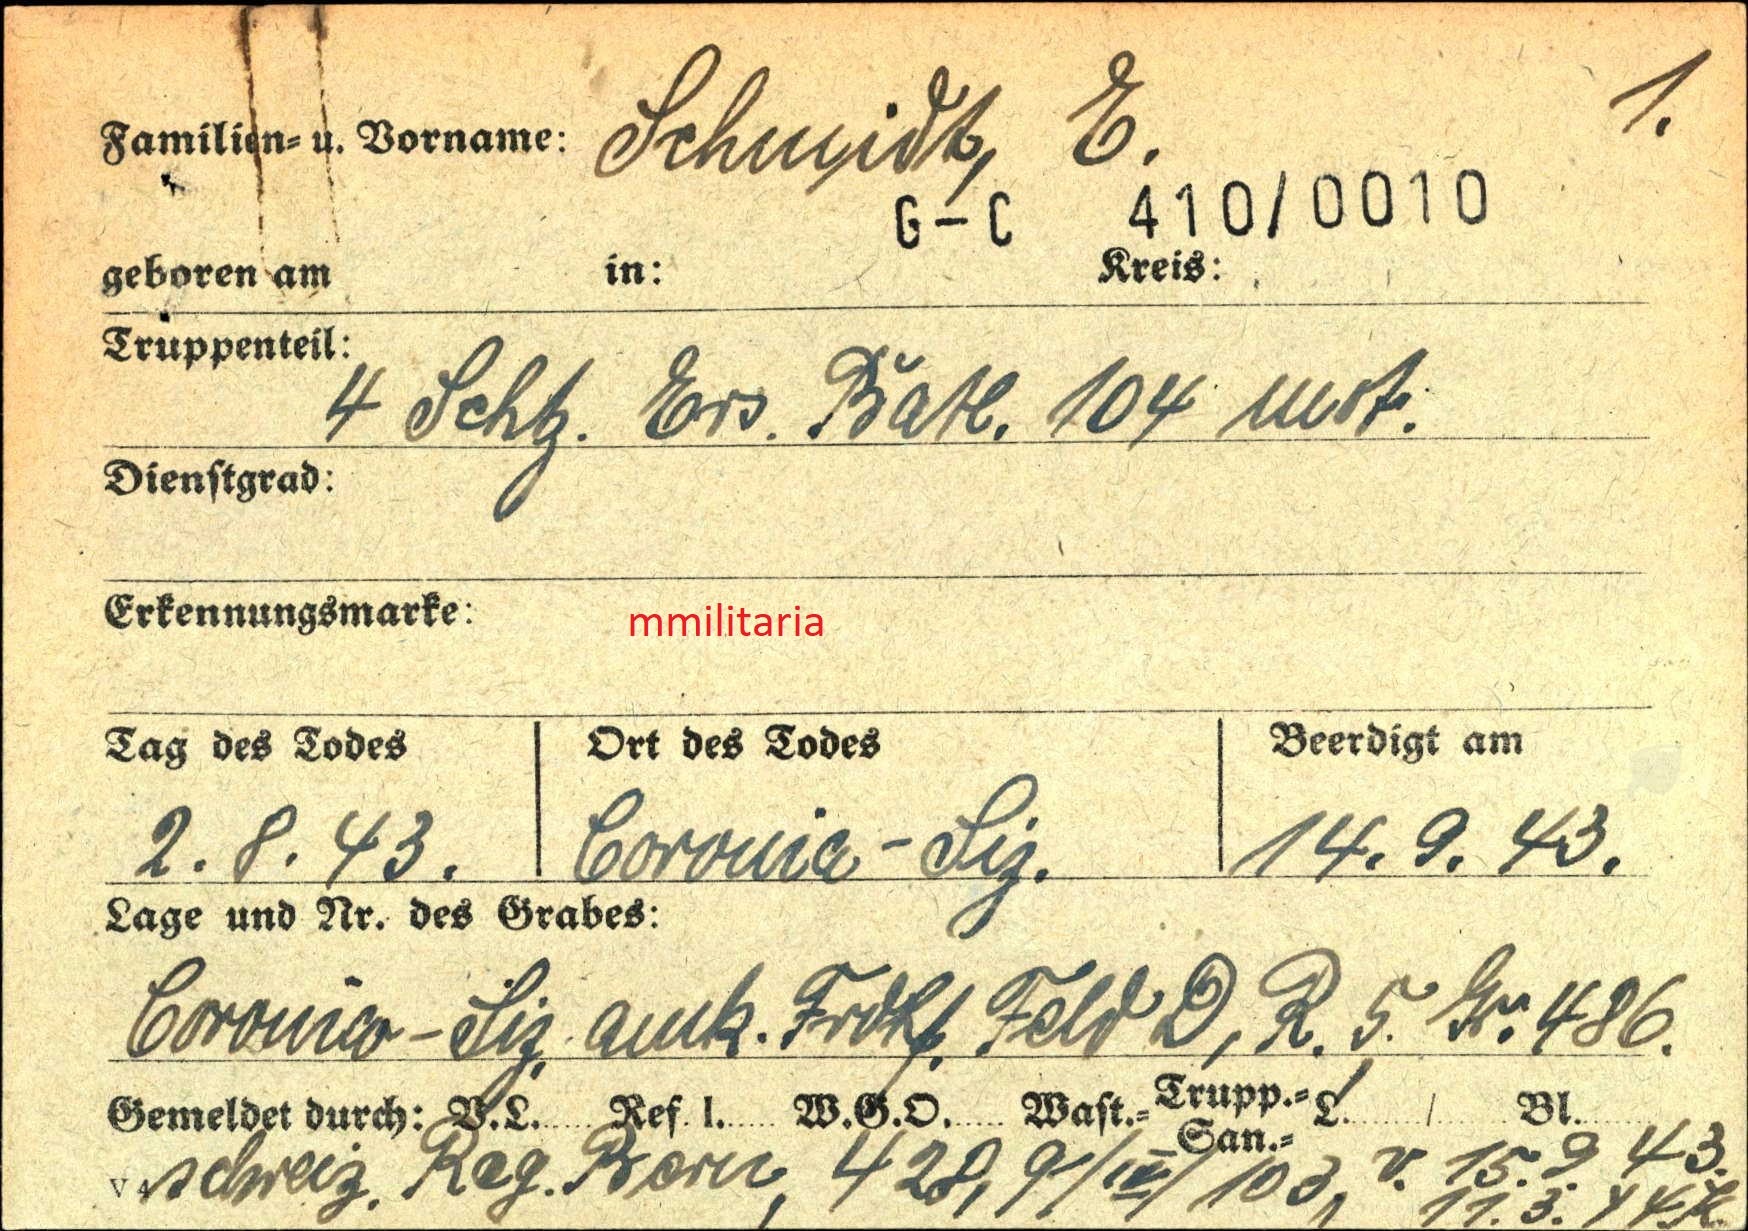 Familien- u. Vorname: Schmidt, E. 1.
G-C 410/0010
geboren am in: Kreis:
Truppenteil:
4 Schtz. Ers. Batl. 104 mot.
Dienstgrad:
Erkennungsmarke:
mmilitaria
Tag des Todes Ort des Todes Beerdigt am
2. 8. 43. Coronia - Siz. 14. 9. 43.
Lage und Nr. des Grabes:
Coronia - Siz. amk. Frdhf. Feld D, R. 5. Gr. 486.
Gemeldet durch: V.L. Ref. I. W.G.O. Wast.- Trupp.- San.- L. / Bl.
V 4 schweiz. Reg. Bern, 428, 9/IV/103, v. 15. 9. 43.
11. 3. 44